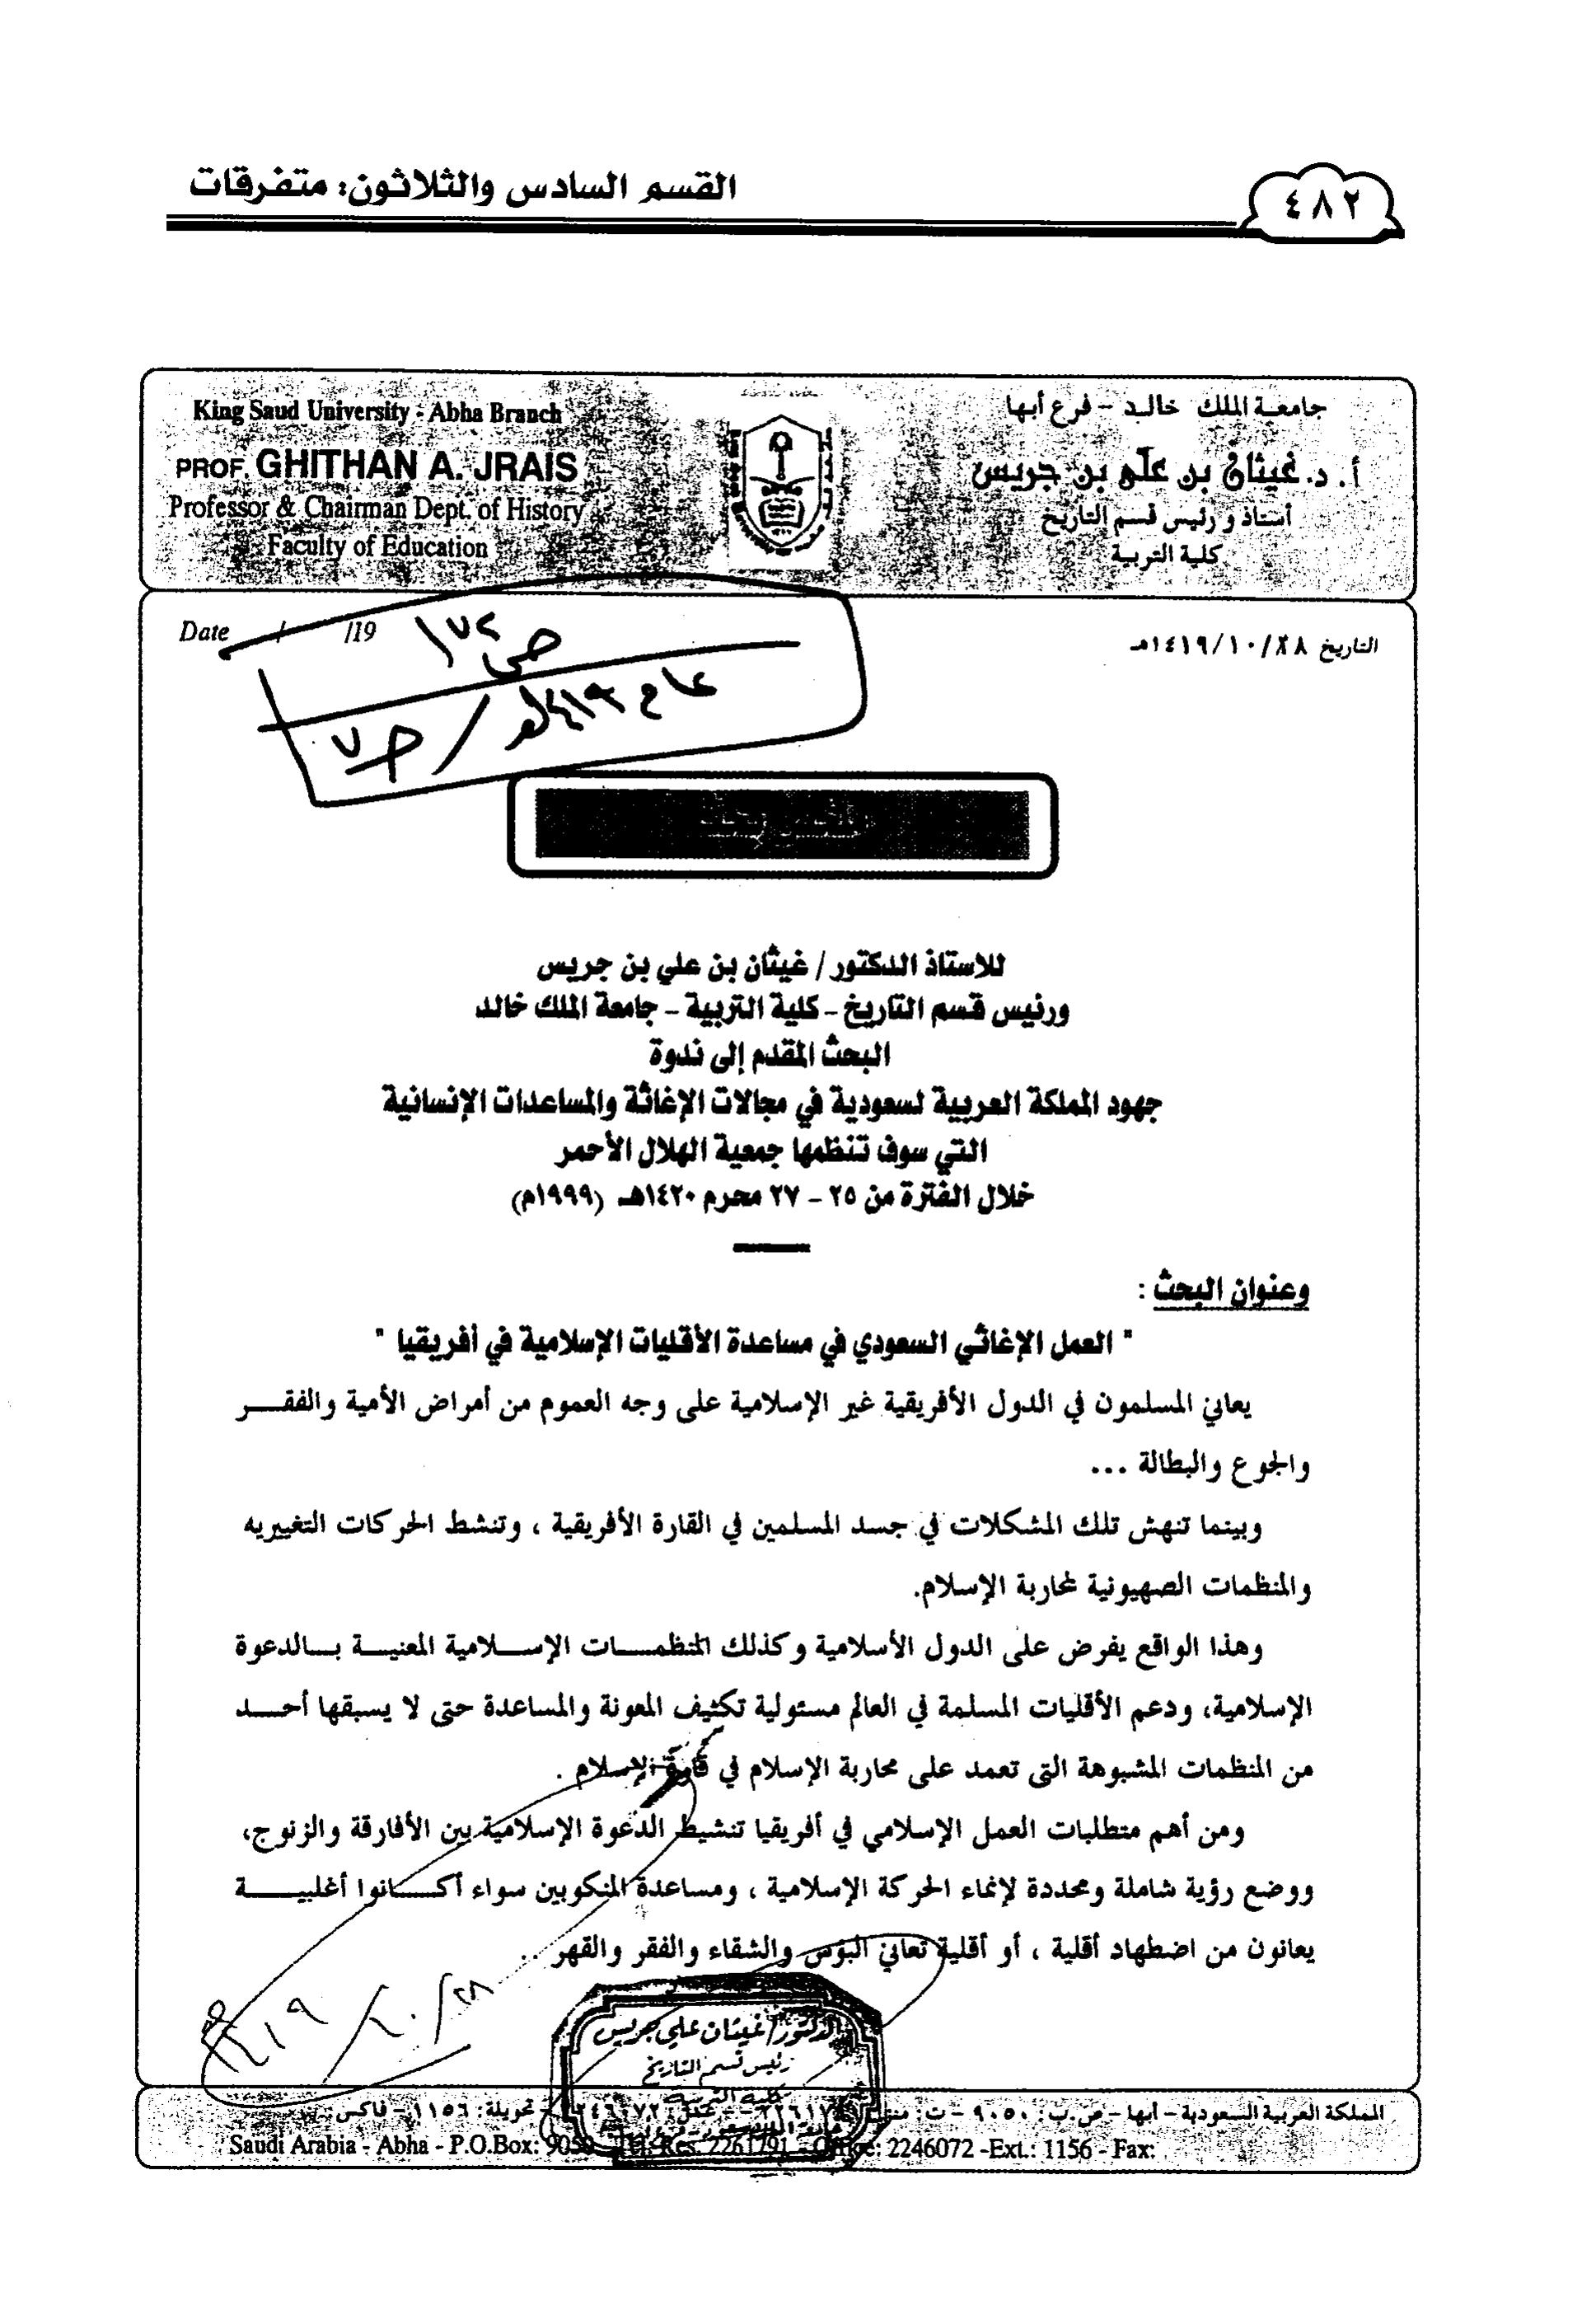 القسم السادس والثلاثون: متفرقات
٤٨٢
جامعة الملك خالد - فرع أبها
أ. د. غيثان بن علي بن جريس
أستاذ و رئيس قسم التاريخ
كلية التربية
King Saud University - Abha Branch
PROF. GHITHAN A. JRAIS
Professor & Chairman Dept. of History
Faculty of Education
التاريخ ٢٨/١٠/١٤١٩هـ
Date / /19
عام ١٤١٩هـ
للاستاذ الدكتور / غيثان بن علي بن جريس
ورئيس قسم التاريخ - كلية التربية - جامعة الملك خالد
البحث المقدم إلى ندوة
جهود المملكة العربية لسعودية في مجالات الإغاثة والمساعدات الإنسانية
التي سوف تنظمها جمعية الهلال الأحمر
خلال الفترة من ٢٥ - ٢٧ محرم ١٤٢٠هـ (١٩٩٩م)
وعنوان البحث :
" العمل الإغاثي السعودي في مساعدة الأقليات الإسلامية في أفريقيا "
يعاني المسلمون في الدول الأفريقية غير الإسلامية على وجه العموم من أمراض الأمية والفقر
والجوع والبطالة ...
وبينما تنهش تلك المشكلات في جسد المسلمين في القارة الأفريقية ، وتنشط الحركات التغييريه
والمنظمات الصهيونية لمحاربة الإسلام.
وهذا الواقع يفرض على الدول الأسلامية وكذلك المنظمات الإسلامية المعنية بالدعوة
الإسلامية، ودعم الأقليات المسلمة في العالم مسئولية تكثيف المعونة والمساعدة حتى لا يسبقها أحد
من المنظمات المشبوهة التى تعمد على محاربة الإسلام في قارة الإسلام .
ومن أهم متطلبات العمل الإسلامي في أفريقيا تنشيط الدعوة الإسلامية بين الأفارقة والزنوج،
ووضع رؤية شاملة ومحددة لإنماء الحركة الإسلامية ، ومساعدة المنكوبين سواء أكانوا أغلبية
يعانون من اضطهاد أقلية ، أو أقلية تعاني البؤس والشقاء والفقر والقهر ..
الدكتور/ غيثان علي جريس
رئيس قسم التاريخ
كلية التربية
المملكة العربية السعودية - أبها - ص.ب: ٩٠٥٠ - ت: - تحويلة: ١١٥٦ - فاكس:
Saudi Arabia - Abha - P.O.Box: 9050 - Tel: Res. 2261791 - Office: 2246072 -Ext.: 1156 - Fax: